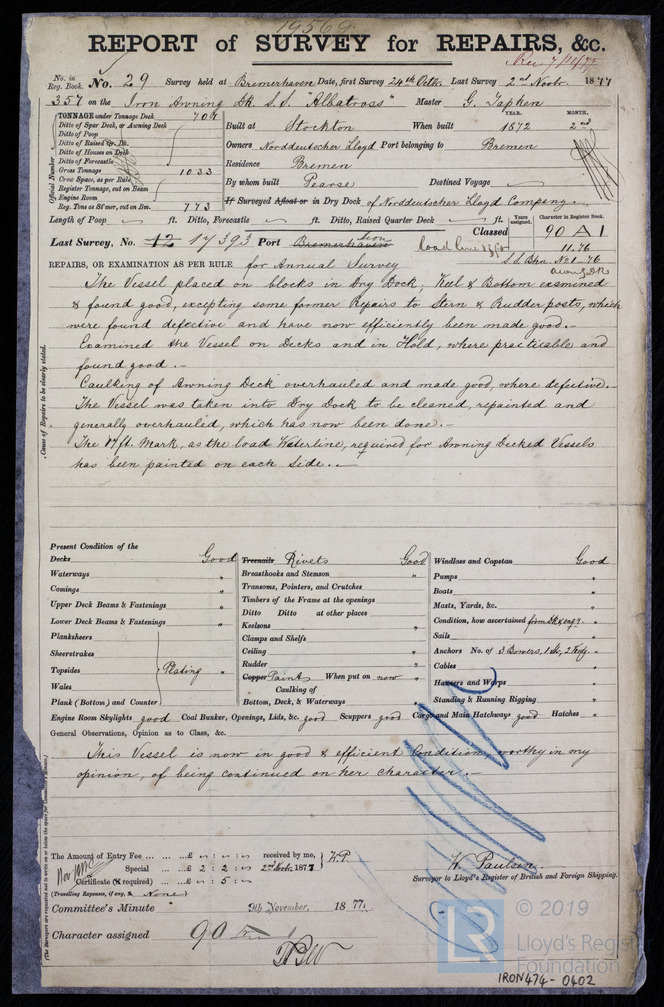 19569
REPORT of SURVEY for REPAIRS, &c.
Rec 7/11/77
No. in Reg. Book. No. 29 Survey held at Bremerhaven Date, first Survey 24th Octb. Last Survey 2nd Novb. 1877
357 on the Iron Awning Dk. S.S. "Albatross" Master G. Tapken
Official Number
TONNAGE under Tonnage Deck 704
Ditto of Spar Deck, or Awning Deck
Ditto of Poop
Ditto of Raised Qr. Dk.
Ditto of Houses on Deck
Ditto of Forecastle
Gross Tonnage 1033
Crew Space, as per Rule
Register Tonnage, cut on Beam
Engine Room
Reg. Tons as St'mer, cut on Bm. 773
YEAR. MONTH.
Built at Stockton When built 1872 2nd
Owners Norddeutscher Lloyd Port belonging to Bremen
Residence Bremen
By whom built Pearse Destined Voyage
If Surveyed Afloat or in Dry Dock of Norddeutscher Lloyd Company.
Length of Poop ft. Ditto, Forecastle ft. Ditto, Raised Quarter Deck ft.
Years assigned. Character in Register Book.
Last Survey, No. 12 17393 Port Bremerhaven Lon Classed 90 A 1
11.76
S.S. Bhn. No 1. 76
REPAIRS, OR EXAMINATION AS PER RULE for Annual Survey
The Vessel placed on blocks in Dry Dock, Keel & Bottom examined
& found good, excepting some former Repairs to Stern & Rudder posts, which
were found defective and have now efficiently been made good.-
Examined the Vessel on Decks and in Hold, where practicable and
found good.-
Caulking of Awning Deck overhauled and made good, where defective.
The Vessel was taken into Dry Dock to be cleaned, repainted and
generally overhauled, which has now been done.-
The 17ft. Mark, as the load Waterline, required for Awning Decked Vessels
has been painted on each side.-
Cause of Repairs to be clearly stated.
Present Condition of the
Decks Good
Waterways "
Comings "
Upper Deck Beams & Fastenings "
Lower Deck Beams & Fastenings "
Planksheers
Sheerstrakes
Topsides Plating "
Wales
Plank (Bottom) and Counter
Treenails Rivets Good
Breasthooks and Stemson "
Transoms, Pointers, and Crutches
Timbers of the Frame at the openings
Ditto Ditto at other places
Keelsons "
Clamps and Shelfs
Ceiling "
Rudder "
Copper Paint When put on now "
Caulking of
Bottom, Deck, & Waterways "
Windlass and Capstan Good
Pumps "
Boats "
Masts, Yards, &c. "
Condition, how ascertained from Dk & rigg. "
Sails "
Anchors No. of 3 Bowers, 1 St., 2 Kedg. "
Cables "
Hawsers and Warps "
Standing & Running Rigging "
Engine Room Skylights good Coal Bunker, Openings, Lids, &c. good Scuppers good Cargo and Main Hatchways good Hatches "
General Observations, Opinion as to Class, &c.
This Vessel is now in good & efficient Condition, worthy in my
opinion, of being continued on her character.-
(The Surveyors are requested not to write on or below the space for Committee's Minute.)
The Amount of Entry Fee ... ... ... £ " : " : " received by me, W.P.
Special ... £ 2 : 2 : " 2nd Novb. 1877
Certificate (if required) ... £ " : 5 : "
(Travelling Expenses, if any, £ None)
W. Paulsen.
Surveyor to Lloyd's Register of British and Foreign Shipping.
Committee's Minute 9th November. 1877.
Character assigned 90
LR
© 2019
Lloyd's Register
Foundation
IRON474-0402